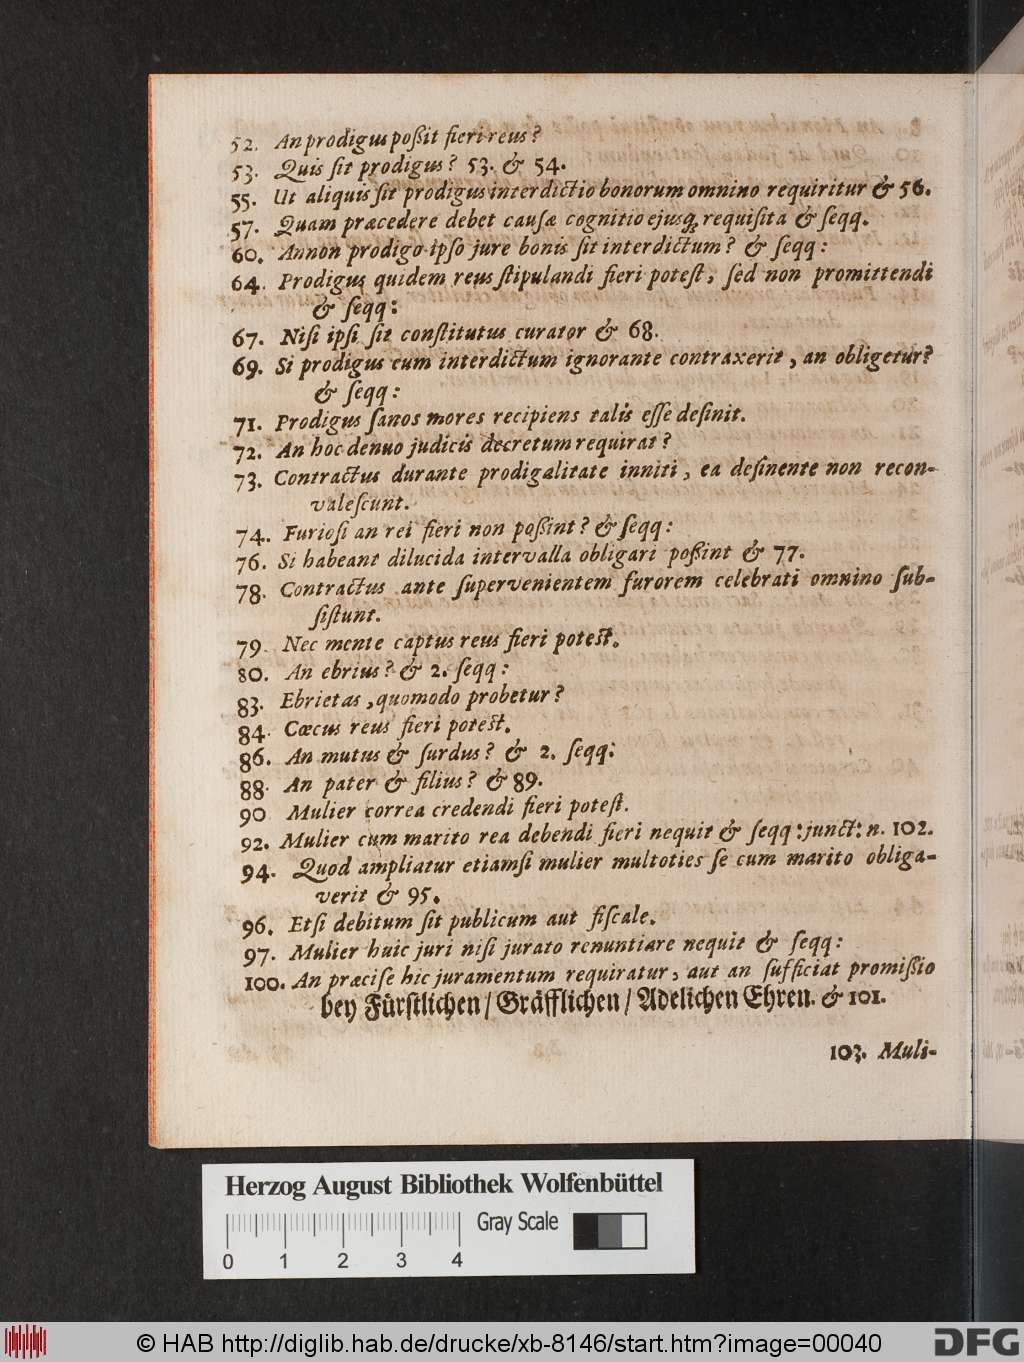 52. An prodigus poßit fieri reus?
53. Quis ſit prodigus? 53. & 54.
55. Ut aliquis ſit prodigus interdictio bonorum omnino requiritur & 56.
57. Quam præcedere debet cauſæ cognitio ejusq́; requiſita & ſeqq.
60. Annon prodigo ipſo jure bonis ſit interdictum? & ſeqq:
64. Prodigus quidem reus ſtipulandi fieri poteſt, ſed non promittendi
& ſeqq:
67. Niſi ipſi ſit conſtitutus curator & 68.
69. Si prodigus cum interdictum ignorante contraxerit, an obligetur?
& ſeqq:
71. Prodigus ſanos mores recipiens talis eſſe deſinit.
72. An hoc denuo judicis decretum requirat?
73. Contractus durante prodigalitate inniti, ea deſinente non recon-
valeſcunt.
74. Furioſi an rei fieri non poßint? & ſeqq:
76. Si habeant dilucida intervalla obligari poßint & 77.
78. Contractus ante ſupervenientem furorem celebrati omnino ſub-
ſiſtunt.
79. Nec mente captus reus fieri poteſt.
80. An ebrius? & 2. ſeqq:
83. Ebrietas, quomodo probetur?
84. Cæcus reus fieri poteſt.
86. An mutus & ſurdus? & 2. ſeqq:
88. An pater & filius? & 89.
90 Mulier correa credendi fieri poteſt.
92. Mulier cum marito rea debendi fieri nequit & ſeqq: junct: n. 102.
94. Quod ampliatur etiamſi mulier multoties ſe cum marito obliga-
verit & 95.
96. Etſi debitum ſit publicum aut fiſcale.
97. Mulier huic juri niſi jurato renuntiare nequit & ſeqq:
100. An præciſe hic juramentum requiratur, aut an ſufficiat promißio
bey Fürſtlichen / Gräfflichen / Adelichen Ehren. & 101.
103. Muli-
Herzog August Bibliothek Wolfenbüttel
Gray Scale
0 1 2 3 4
© HAB http://diglib.hab.de/drucke/xb-8146/start.htm?image=00040
DFG